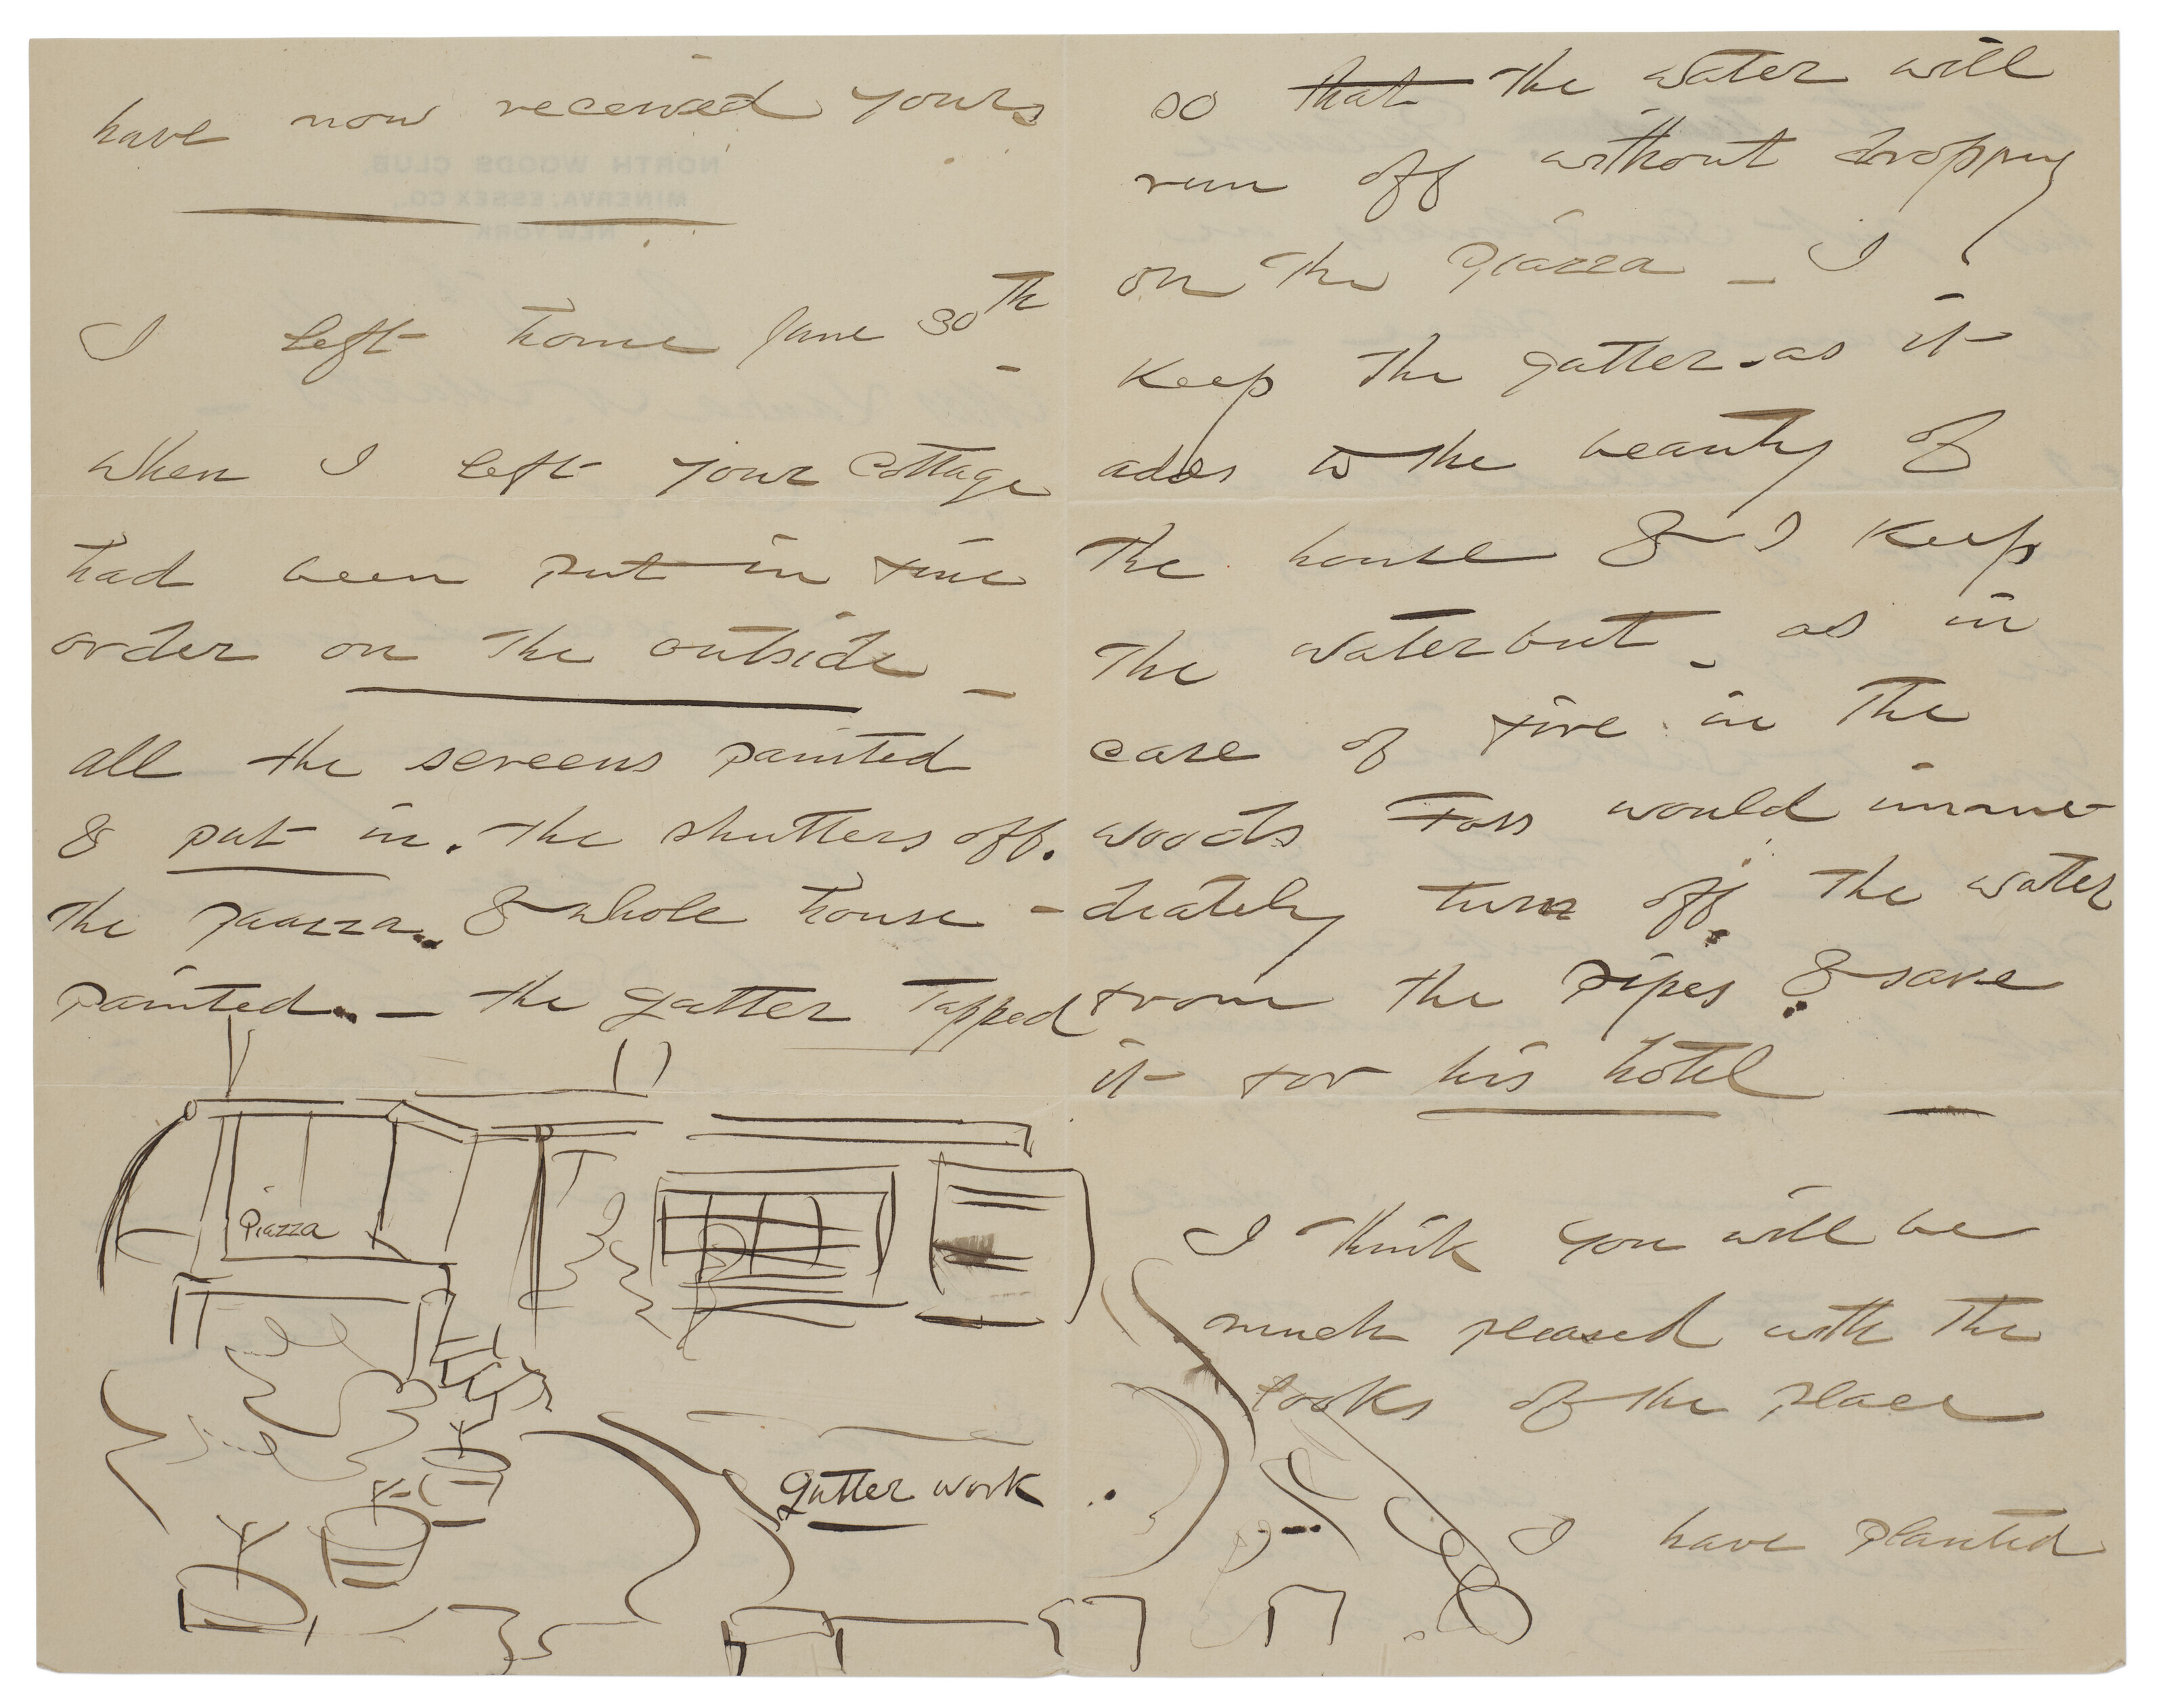 have now received yours
I left home June 30th -
When I left your Cottage
had been put in fine
order on the outside -
all the screens painted
& put in. the shutters off.
the piazza & whole house -
painted - the gutter Tapped
Piazza
gutter work
so that the water will
run off without dropping
on the Piazza - I
Keep the gutter - as it
adds to the beauty of
the house & I Keep
the waterbutt - as in
case of fire in the
woods Foss would imme
diately turn off the water
from the pipes & save
it for his hotel -
I think you will be
much pleased with the
looks of the place
I have planted
NORTH WOODS CLUB,
MINERVA, ESSEX CO.,
NEW YORK.